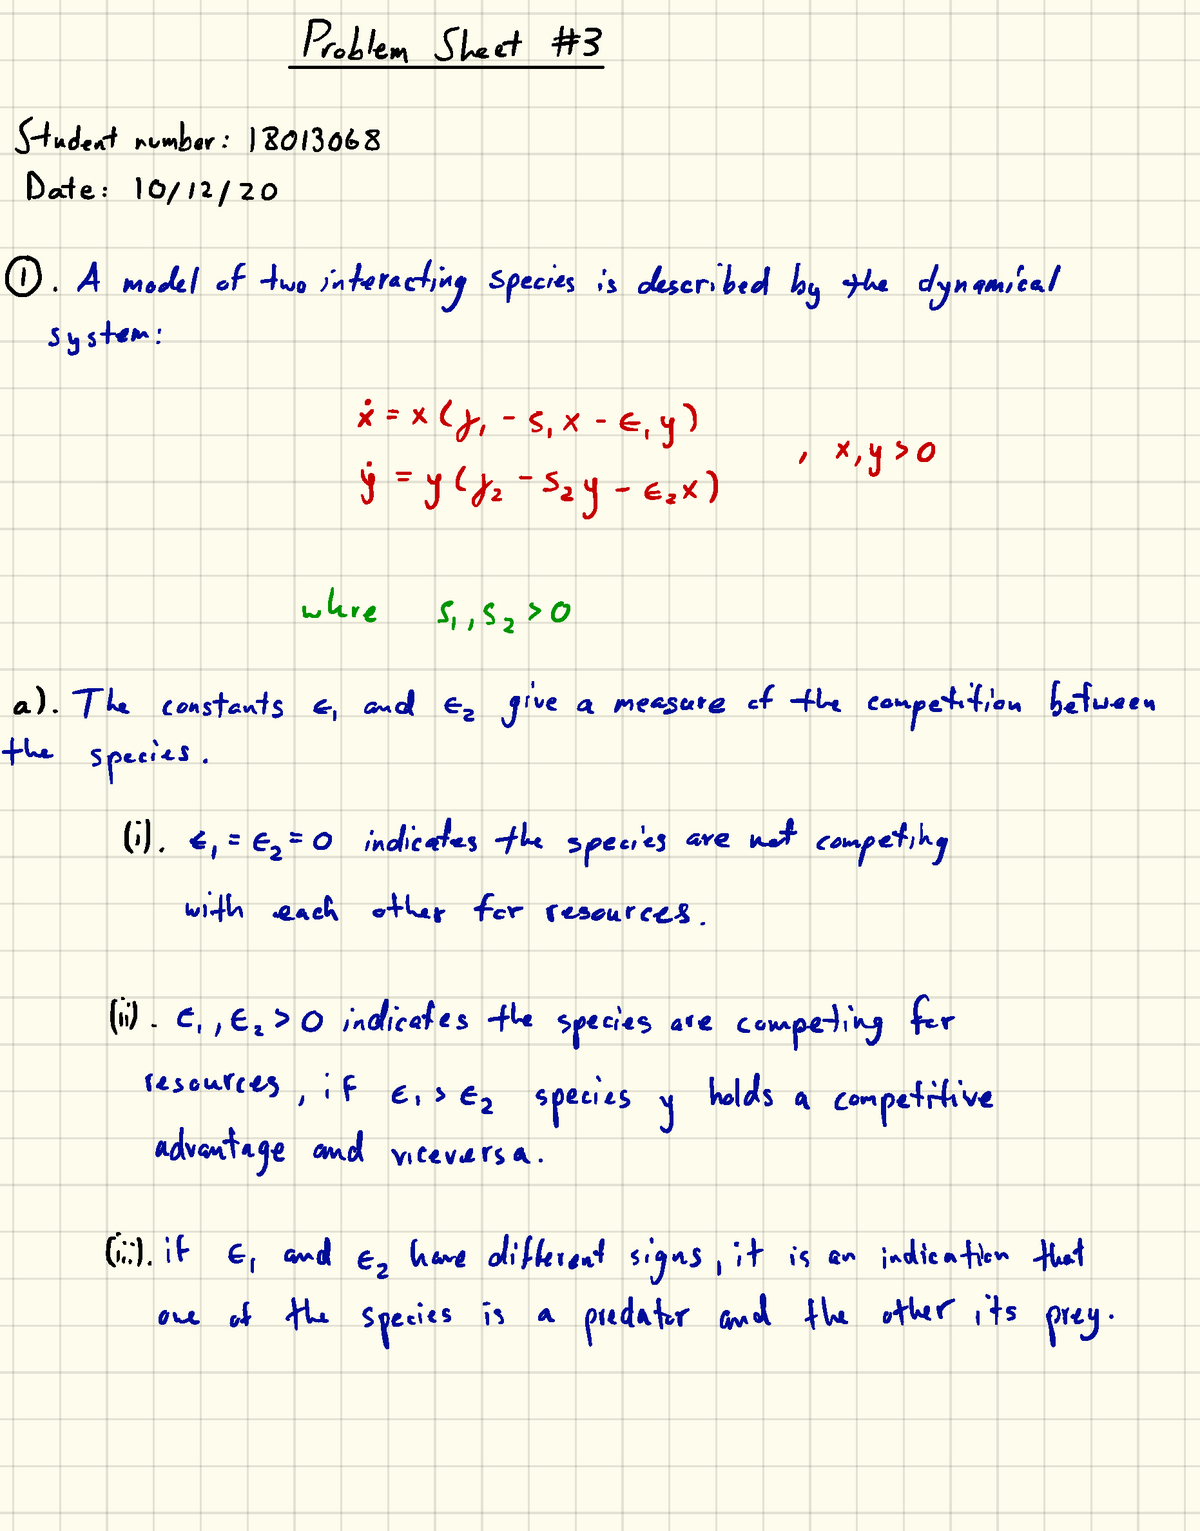 Problem Sheet #3
Student number: 18013068
Date: 10/12/20
①. A model of two interacting species is described by the dynamical
system:
ẋ = x(γ₁ - s₁x - ϵ₁y)
, x,y>0
ẏ = y(γ₂ - s₂y - ϵ₂x)
where s₁, s₂ >0
a). The constants ϵ₁ and ϵ₂ give a measure of the competition between
the species.
(i). ϵ₁ = ϵ₂ = 0 indicates the species are not competing
with each other for resources.
(ii). ϵ₁, ϵ₂ > 0 indicates the species are competing for
resources, if ϵ₁ > ϵ₂ species y holds a competitive
advantage and viceversa.
(iii). if ϵ₁ and ϵ₂ have different signs, it is an indication that
one of the species is a predator and the other its prey.